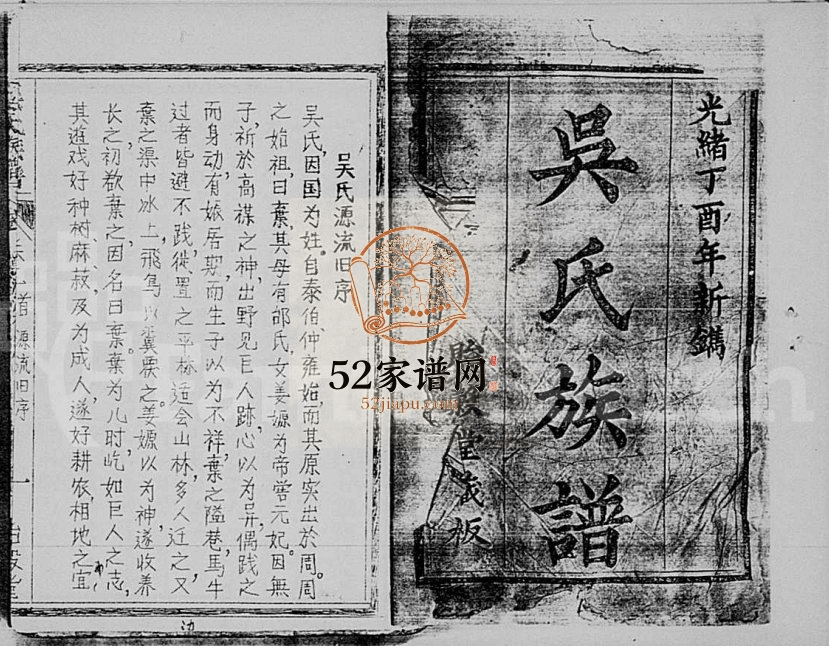 光緒丁酉年新鐫
吳氏族譜
堂藏板
吴氏源流旧序
吴氏,因国为姓。自泰伯仲雍始,而其原实出於周。周
之始祖,曰棄,其母有邰氏女姜嫄为帝喾元妃。因無
子,祈於高禖之神,出野见巨人跡,心以为异,偶践之
而身动有娠,居期而生子,以为不祥,棄之隘巷,馬牛
过者皆避不践,徙置之平林,适会山林多人,迁之,又
棄之渠中冰上,飛鳥以翼覆之,姜嫄以为神,遂收养
长之,初欲棄之,因名曰棄,棄为儿时,屹如巨人之志,
其遊戏好种树麻菽,及为成人,遂好耕农,相地之宜
首
源流旧序
一
52家谱网
52jiapu.com